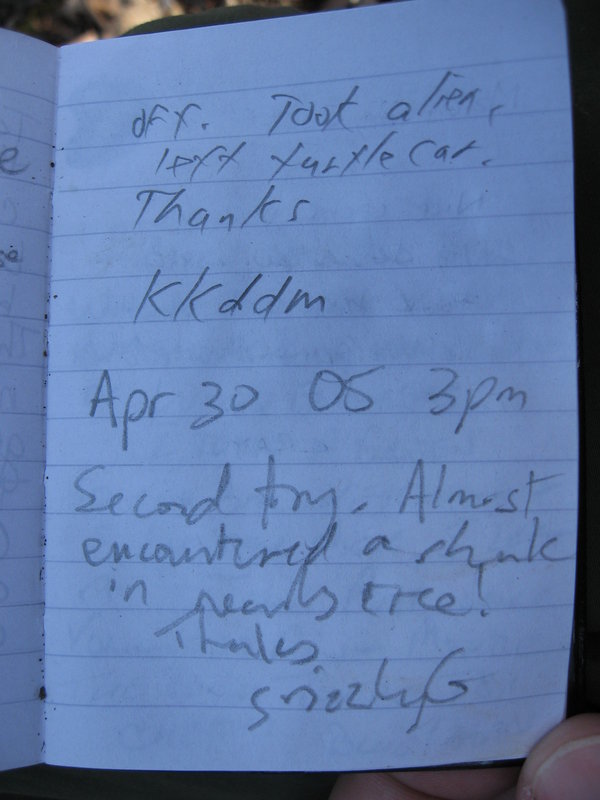 off. Took alien,
left turtle car.
Thanks
KKddm
Apr 30 05 3pm
Second try. Almost
encountered a skunk
in nearby tree!
Thanks
GrizzlyG
e
se